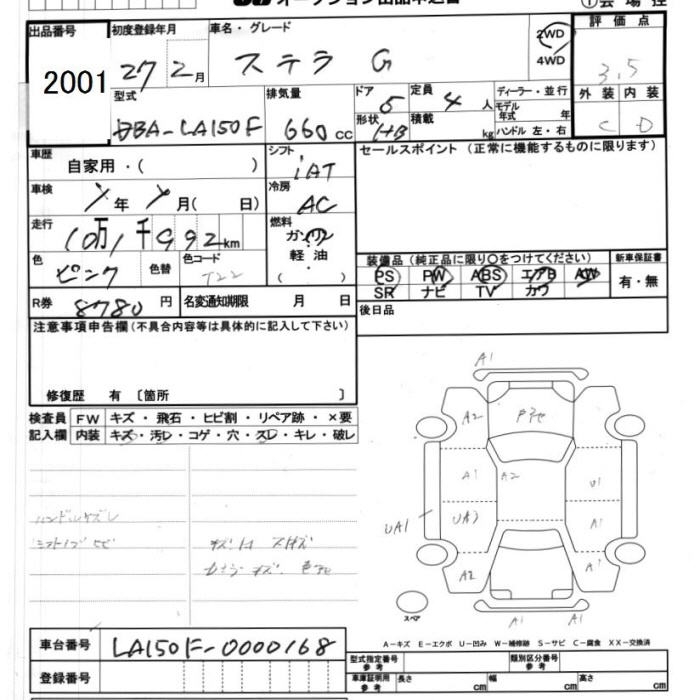 出品番号 2001
初度登録年月 27 2月
車名・グレード ステラ G
2WD 4WD
評価点 3.5
外装 内装
C D
型式 DBA-LA150F
排気量 660cc
ドア 5
形状 HB
定員 4人
積載 kg
ディーラー・並行
モデル年式 年
ハンドル 左・右
車歴 自家用・( )
シフト iAT
セールスポイント(正常に機能するものに限ります)
車検 年 月( 日)
冷房 AC
走行 10万1千992km
燃料 ガソリン 軽油 ( ・ )
色 ピンク 色替
色コード T22
装備品(純正品に限り○をつけてください)
PS PW ABS エアB AW
SR ナビ TV カワ
新車保証書 有・無
R券 8780円
名変通知期限 月 日
後日品
注意事項申告欄(不具合内容等は具体的に記入して下さい)
修復歴 有〔箇所 〕
検査員記入欄
FW キズ・飛石・ヒビ割・リペア跡・×要
内装 キズ・汚レ・コゲ・穴・スレ・キレ・破レ
A1
A2
A1 A2 A1
UA1
A2 A1
A1 A1
スペア
A-キズ E-エクボ U-凹み W-補修跡 S-サビ C-腐食 XX-交換済
車台番号 LA150F-0000168
登録番号
型式指定番号 参考
類別区分番号 参考
車庫証明用 参考 長さ cm 幅 cm 高さ cm